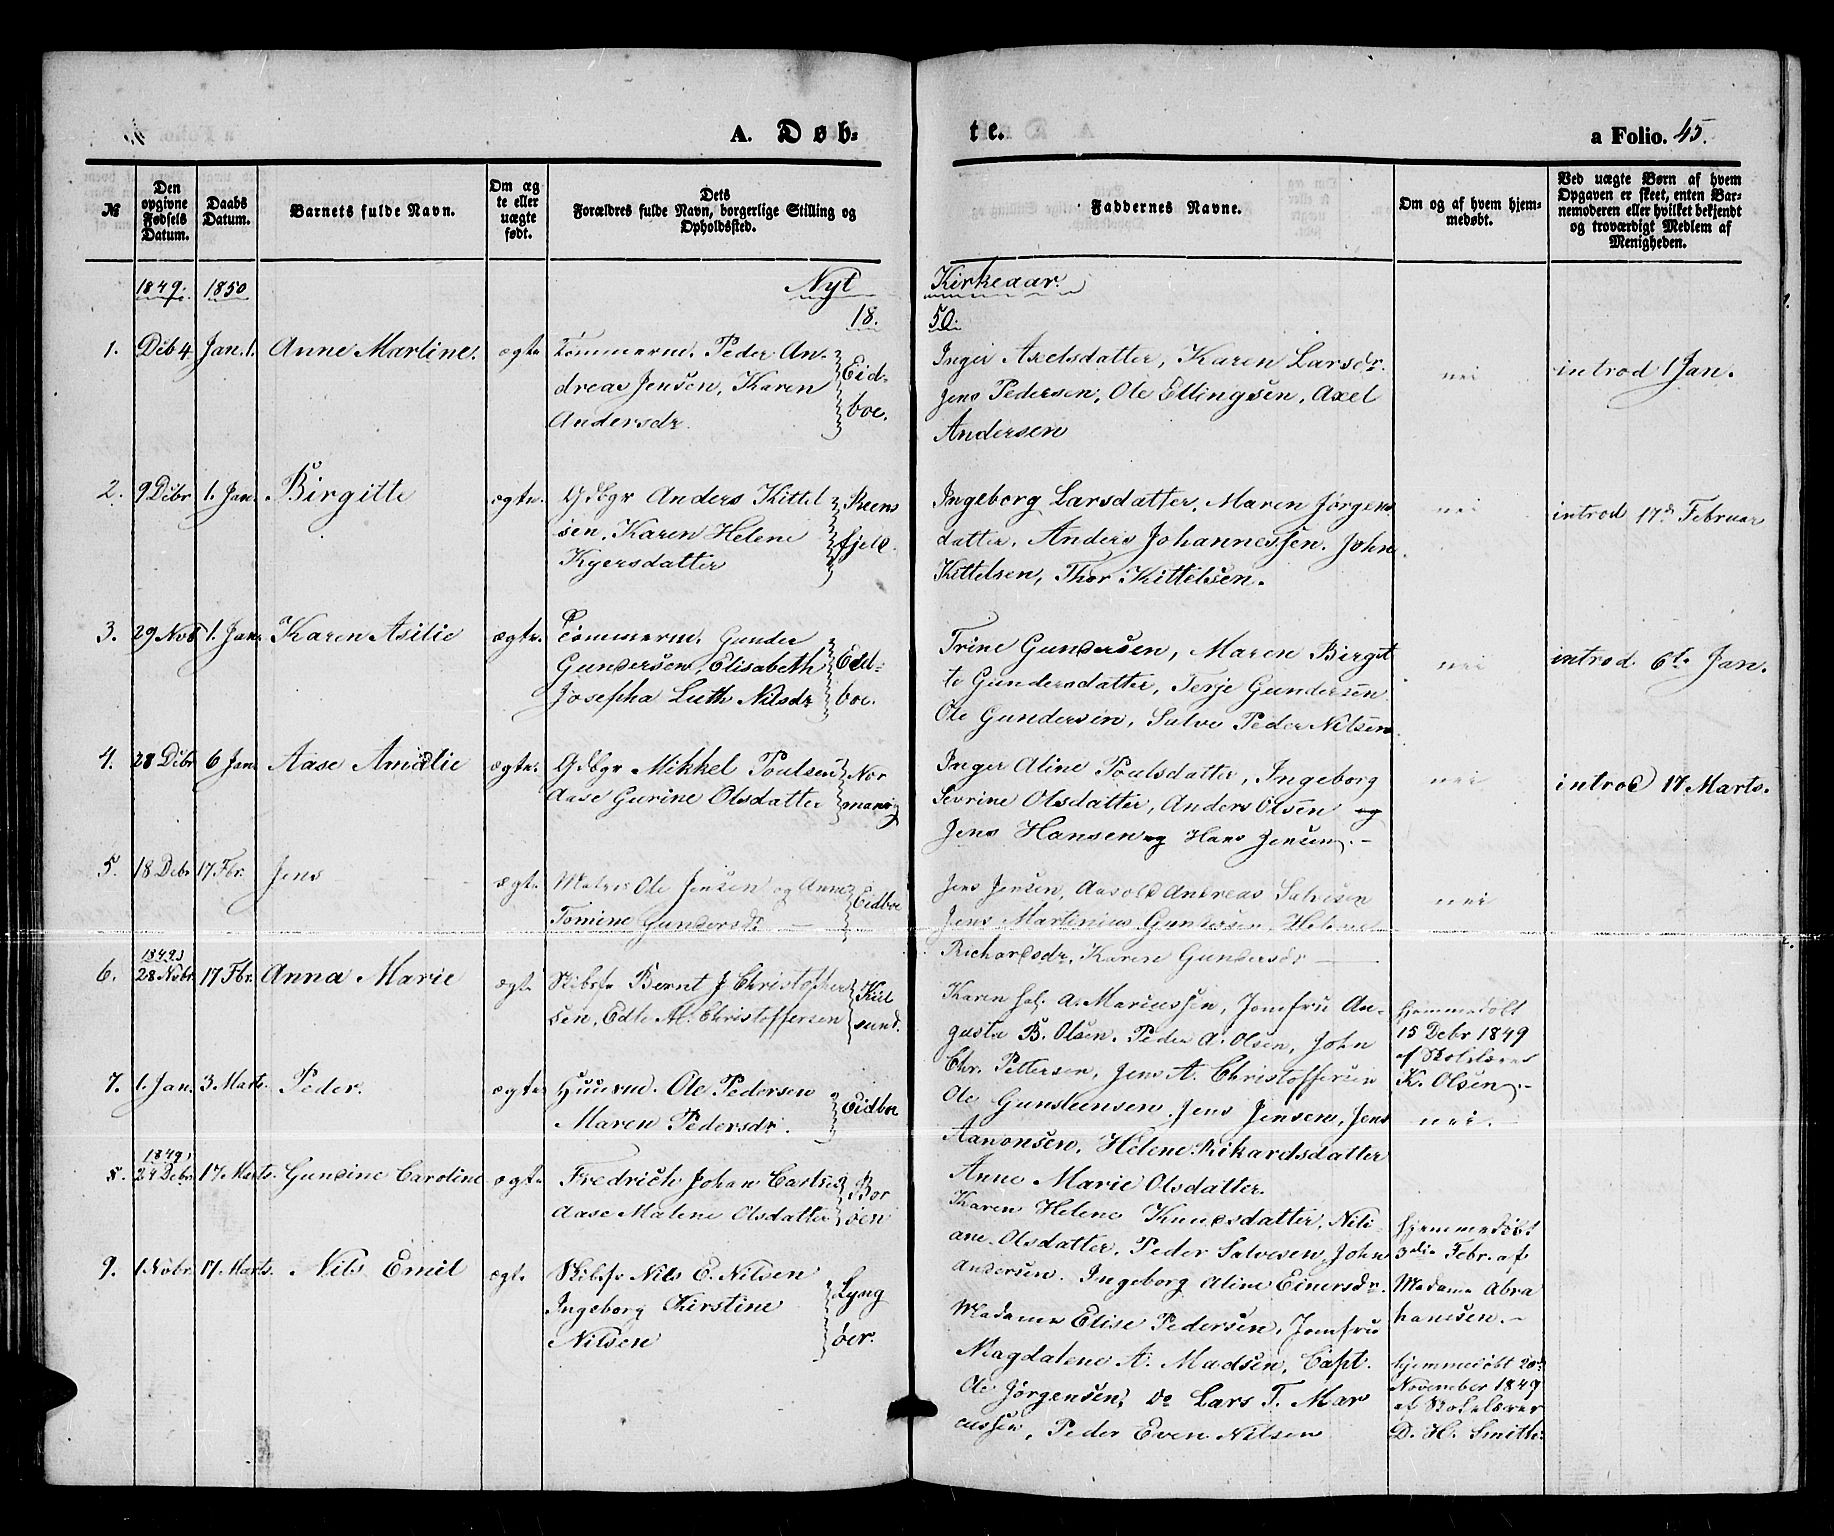 A. Døb-
te.
a Folio. 45.
№
Den opgivne Fødsels Datum.
Daabs Datum.
Barnets fulde Navn.
Om ægte eller uægte født.
Dets Forældres fulde Navn, borgerlige Stilling og Opholdssted.
Faddernes Navne.
Om og af hvem hjemmedøbt.
Ved uægte Børn af hvem Opgaven er skeet, enten Barnemoderen eller hvilket bekjendt og troværdigt Medlem af Menigheden.
1849. 1850 Nyt Kirkeaar.
18. 50.
1. Dcb 4 Jan. 1. Anne Martine. ægte Tømmerm. Peder An-
dreas Jensen, Karen
Andersdr.
Eid-
boe.
Inger Axelsdatter, Karen Larsdr.
Jens Pedersen, Ole Ellingsen, Axel
Andersen
nei
introd 1 Jan.
2. 9 Dcbr 1. Jan. Birgitte ægte. Gdbgr Anders Kittel
sen, Karen Helene
Kyersdatter
Steens
fjeld.
Ingeborg Larsdatter, Maren Jørgens
datter, Anders Johannessen. John
Kittelsen, Thor Kittelsen.
nei
introd 17de Februar
3. 29 Nvb 1. Jan. Karen Asilie ægte. Tømmerm. Gunder
Gundersen, Elisabeth
Josepha Luth Nilsdr
Eid-
boe.
Trine Gundersen, Maren Birgit
te Gundersdatter, Terje Gundersen
Ole Gundersen, Salve Peder Nilsen.
nei
introd. 6te Jan.
4. 28 Dcbr 6 Jan. Aase Amalie ægte. Gdbgr Mikkel Poulsen
Aase Gurine Olsdatter
Nor
manvig
Inger Aline Poulsdatter, Ingeborg
Sevrine Olsdatter, Anders Olsen og
Jens Hansen og Hans Jensen. -
nei
introd 17 Marts.
5. 18 Debr 17 Fbr. Jens ægte Matros Ole Jensen og Anne
Tomine Gundersdr
Eidboe
Jens Jensen, Aasold Andreas Salvesen
Jens Martinius Gundersen, Helene
Richardsdr, Karen Gundersdr
nei
1849
6. 28 Nvbr. 17 Fbr. Anna Marie ægt. Skibsfr Bernt J Christopher
sen, Edle M. Christoffersen
Kiil
sund.
Karen A. Mariussen, Jomfru Au-
gusta B. Olsen. Peder A. Olsen, John
Chr. Pettersen, Jens A. Christoffersen
Hjemmedøbt
15 Debr 1849
af Skolelærer
K. Olsen. -
7. 1. Jan. 3 Marts. Peder. ægte. Huusm. Ole Pedersen
Maren Pedersdr.
Eidboe
Ole Gunsteensen. Jens Jensen, Jens
Aanonsen, Helene Rikardsdatter
Anne Marie Olsdatter.
nei.
1849
8. 24 Debr 17 Marts. Gundine Caroline ægte Fredrich Johan Carlsen
Aase Malene Olsdatter
Bor
øen
Karen Helene Knudsdatter, Nili
ane Olsdatter, Peder Salvesen, John
Andersen. Ingeborg Aline Einersdr.
Hjemmedøbt
3die Febr. af
Madame Abra
hamsen. -
9. 1 Nvbr. 17 Marts. Nils Emil ægt. Skibsfr Nils E. Nilsen
Ingeborg Kirstine
Nilsen
Lyng
øer.
Madame Elise Pedersen, Jomfru
Magdalene A. Madsen, Capt.
Ole Jørgensen, Do Lars T. Mar
cussen, Peder Even Nilsen
hjemmedøbt 20de
November 1849
af Skolelærer
D. H. Smith.